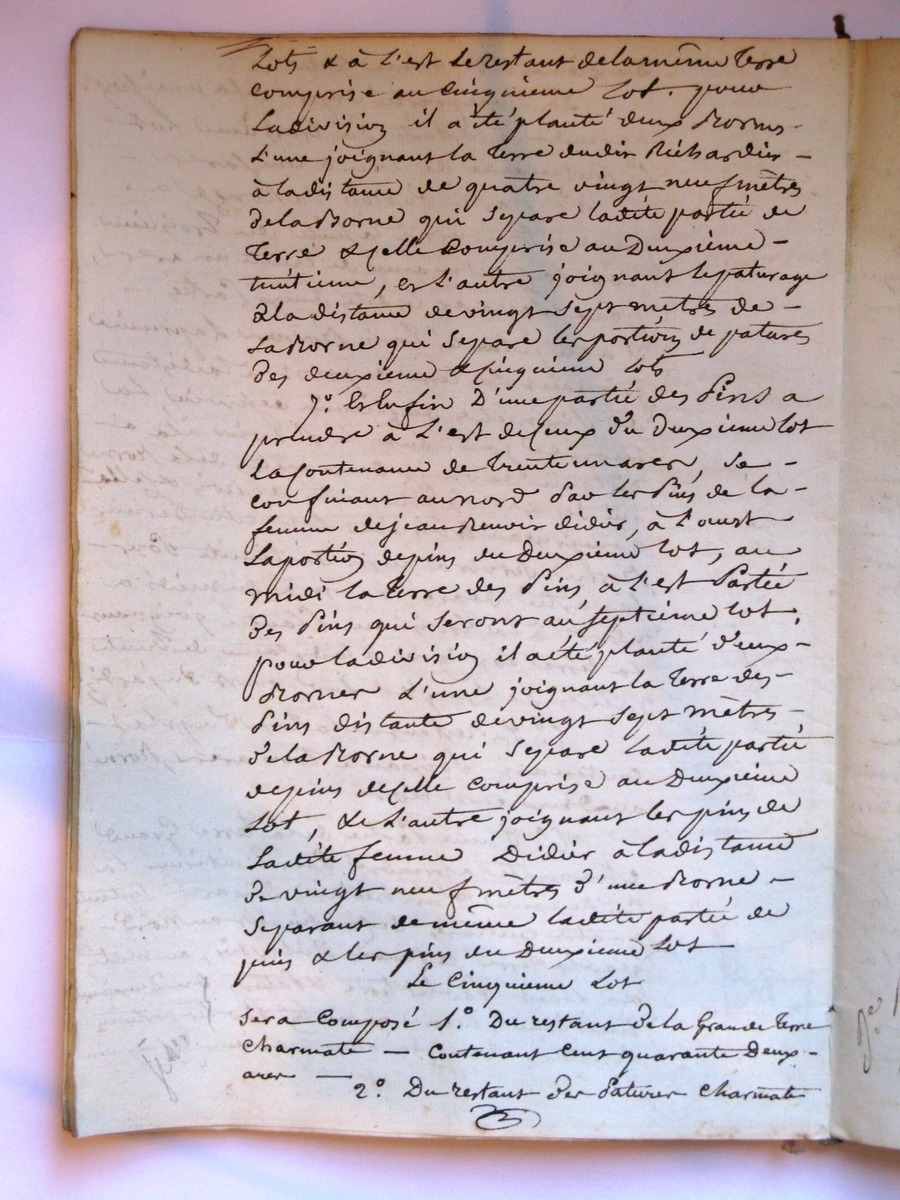 Lots & à L'est Le restant de la même Terre
comprise au Cinquieme Lot. pour
La division il a été planté deux Bornes
L'une joignant la Terre dudit Richardier
à la distance de quatre vingt neuf mètres
de la Borne qui Separe ladite partie de
Terre & celle Comprise au Deuxième
huitieme, et L'autre joignant le paturage
a La distance de vingt Sept mètres de
La Borne qui Separe les portions de patures
Des deuxieme & Cinquieme Lots
7º. Et Enfin D'une partie des Pins a
prendre à L'est de Ceux du Deuxieme Lot
La Contenance de Trente un ares, Se
confinant au nord par les Pins de la
femme de jean Didier, à L'ouest
La portion de pins du Deuxieme Lot, au
midi la Terre des Pins, à L'est Partie
Des Pins qui Seront au Septieme Lot,
pour la division il a été planté Deux
Bornes L'une joignant la Terre des
Pins distante de vingt Sept mètres
De la Borne qui Separe Ladite partie
de pins de Celle Comprise au Deuxieme
Lot, & L'autre joignant les pins de
Ladite femme Didier à la distance
De vingt neuf mètres D'une Borne
Separant de même ladite partie de
pins & les pins du Deuxieme Lot
Le Cinquieme Lot
Sera Composé 1º. Du restant De la Grande Terre
Charmate — Contenant Cent quarante Deux
ares —
2º. Du restant Des Patures Charmate